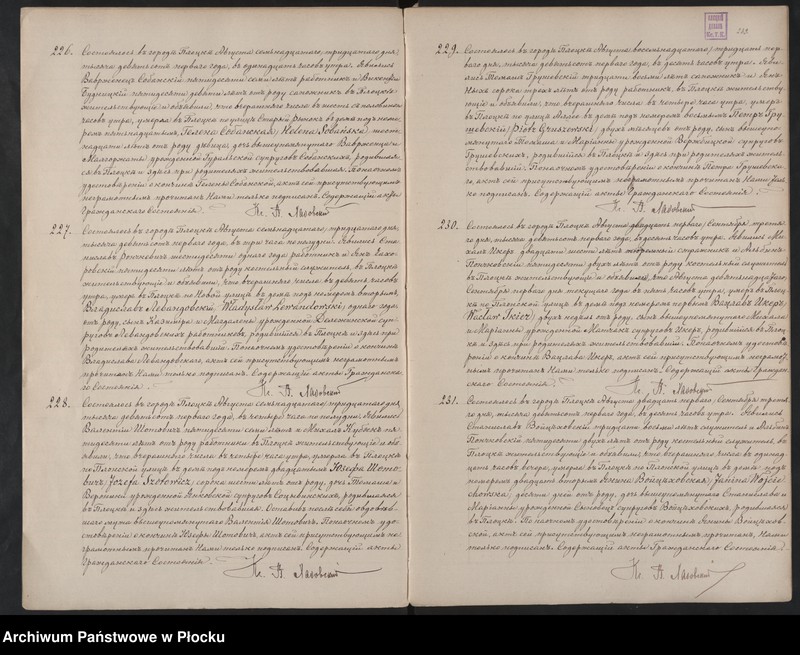 226. Состоялось въ городѣ Плоцкѣ Августа семьнадцатаго /тридцатаго/ дня,
тысяча девятьсотъ перваго года, въ одинадцать часовъ утра. Явились
Вавржинецъ Собанскій пятидесяти семи лѣтъ работникъ и Викентій
Будницкій пятидесяти девяти лѣтъ отъ роду сапожникъ въ Плоцкѣ
жительствующіе и объявили, что вчерашняго числа въ шесть съ половиною
часовъ утра, умерла въ Плоцкѣ по улицѣ Старый Рынокъ въ домѣ подъ номе-
ромъ пятнадцатымъ, Гелена Собанская /Helena Sobańska/ шест-
надцати лѣтъ отъ роду дѣвица, дочь вышеупомянутаго Вавржинца и
Малгоржаты урожденной супруговъ Собанскихъ, родивша-
яся въ Плоцкѣ и здѣсь при родителяхъ жительствовавшая. По наочномъ
удостовѣреніи о кончинѣ Гелены Собанской, актъ сей присутствующимъ
неграмотнымъ прочитанъ Нами только подписанъ. Содержащій акты
Гражданскаго Состоянія.
Кс. В. Лазовскій
227. Состоялось въ городѣ Плоцкѣ Августа семьнадцатаго /тридцатаго/ дня,
тысяча девятьсотъ перваго года, въ три часа по полудни. Явились Ста-
ниславъ шестидесяти одного года работникъ и Янъ
пятидесяти лѣтъ отъ роду костельный служитель, въ Плоцкѣ
жительствующіе и объявили, что вчерашняго числа въ девять часовъ
утра, умеръ въ Плоцкѣ по Новой улицѣ въ домѣ подъ номеромъ вторымъ,
Владиславъ Левандовскій /Władysław Lewandowski/ одного года
отъ роду, сынъ Казиміра и Магдалены урожденной супру-
говъ Левандовскихъ работниковъ, родившійся въ Плоцкѣ и здѣсь при
родителяхъ жительствовавшій. По наочномъ удостовѣреніи о кончинѣ
Владислава Левандовскаго, актъ сей присутствующимъ неграмотнымъ
прочитанъ Нами только подписанъ. Содержащій акты Гражданска-
го Состоянія.
Кс. В. Лазовскій
228. Состоялось въ городѣ Плоцкѣ Августа семьнадцатаго /тридцатаго/ дня,
тысяча девятьсотъ перваго года, въ четыре часа по полудни. Явились
Валентій Шотовичъ пятидесяти семи лѣтъ и Михалъ пя-
тидесяти лѣтъ отъ роду работники въ Плоцкѣ жительствующіе и объ-
явили, что вчерашняго числа въ четыре часа утра, умерла въ Плоцкѣ
по Плонской улицѣ въ домѣ подъ номеромъ двадцатымъ Юзефа Шото-
вичъ /Józefa Szotowicz/ сорока шести лѣтъ отъ роду, дочь Томаша и
Вероники урожденной супруговъ родившаяся
въ Плоцкѣ и здѣсь жительствовавшая. Оставивъ послѣ себя овдовѣв-
шаго мужа вышеупомянутаго Валентія Шотовича. По наочномъ удо-
стовѣреніи о кончинѣ Юзефы Шотовичъ, актъ сей присутствующимъ не-
грамотнымъ прочитанъ Нами только подписанъ. Содержащій акты
Гражданскаго Состоянія.
Кс. В. Лазовскій
229. Состоялось въ городѣ Плоцкѣ Августа восемнадцатаго /тридцать пер-
ваго/ дня, тысяча девятьсотъ перваго года, въ десять часовъ утра. Яви-
лись Томашъ Грушевскій тридцати восьми лѣтъ сапожникъ и Янъ
сорока трехъ лѣтъ отъ роду работникъ, въ Плоцкѣ жительству-
ющіе и объявили, что вчерашняго числа въ четыре часа утра, умеръ
въ Плоцкѣ по улицѣ въ домѣ подъ номеромъ восьмымъ Петръ Гру-
шевскій /Piotr Gruszewski/ двухъ мѣсяцевъ отъ роду, сынъ вышеупо-
мянутаго Томаша и Маріанны урожденной Вержбицкой супруговъ
Грушевскихъ, родившійся въ Плоцкѣ и здѣсь при родителяхъ житель-
ствовавшій. По наочномъ удостовѣреніи о кончинѣ Петра Грушевска-
го, актъ сей присутствующимъ неграмотнымъ прочитанъ Нами толь-
ко подписанъ. Содержащій акты Гражданскаго Состоянія.
Кс. В. Лазовскій
230. Состоялось въ городѣ Плоцкѣ Августа двадцать перваго /Сентября третья-
го/ дня, тысяча девятьсотъ перваго года, въ десять часовъ утра. Явились Ми-
халъ Икеръ двадцати шести лѣтъ стражникъ и Альбинъ
Пончковскій пятидесяти двухъ лѣтъ отъ роду костельный служитель
въ Плоцкѣ жительствующіе и объявили, что Августа девятнадцатаго
/Сентября перваго/ дня текущаго года въ пять часовъ утра, умеръ въ Плоц-
кѣ по Плонской улицѣ въ домѣ подъ номеромъ первымъ Вацлавъ Икеръ
/Wacław Ikier/ двухъ недѣль отъ роду, сынъ вышеупомянутаго Михала
и Маріанны урожденной супруговъ Икеръ, родившійся въ Плоц-
кѣ и здѣсь при родителяхъ жительствовавшій. По наочномъ удостовѣ-
реніи о кончинѣ Вацлава Икера, актъ сей присутствующимъ неграмот-
нымъ прочитанъ Нами только подписанъ. Содержащій акты Граждан-
скаго Состоянія.
Кс. В. Лазовскій
231. Состоялось въ городѣ Плоцкѣ Августа двадцать перваго /Сентября третья-
го/ дня, тысяча девятьсотъ перваго года, въ десять часовъ утра. Явились
Станиславъ Войцѣховскій тридцати восьми лѣтъ служитель и Альбинъ
Пончковскій пятидесяти двухъ лѣтъ отъ роду костельный служитель, въ
Плоцкѣ жительствующіе и объявили, что вчерашняго числа въ одинад-
цать часовъ вечера, умерла въ Плоцкѣ по Плонской улицѣ въ домѣ подъ
номеромъ двадцать вторымъ Янина Войцѣховская /Janina Wojcie-
chowska/ десяти дней отъ роду, дочь вышеупомянутаго Станислава и
Маріанны урожденной супруговъ Войцѣховскихъ, родившаяся
въ Плоцкѣ. По наочномъ удостовѣреніи о кончинѣ Янины Войцѣхов-
ской, актъ сей присутствующимъ неграмотнымъ прочитанъ, Нами
только подписанъ. Содержащій акты Гражданскаго Состоянія.
Кс. В. Лазовскій
Archiwum Państwowe w Płocku